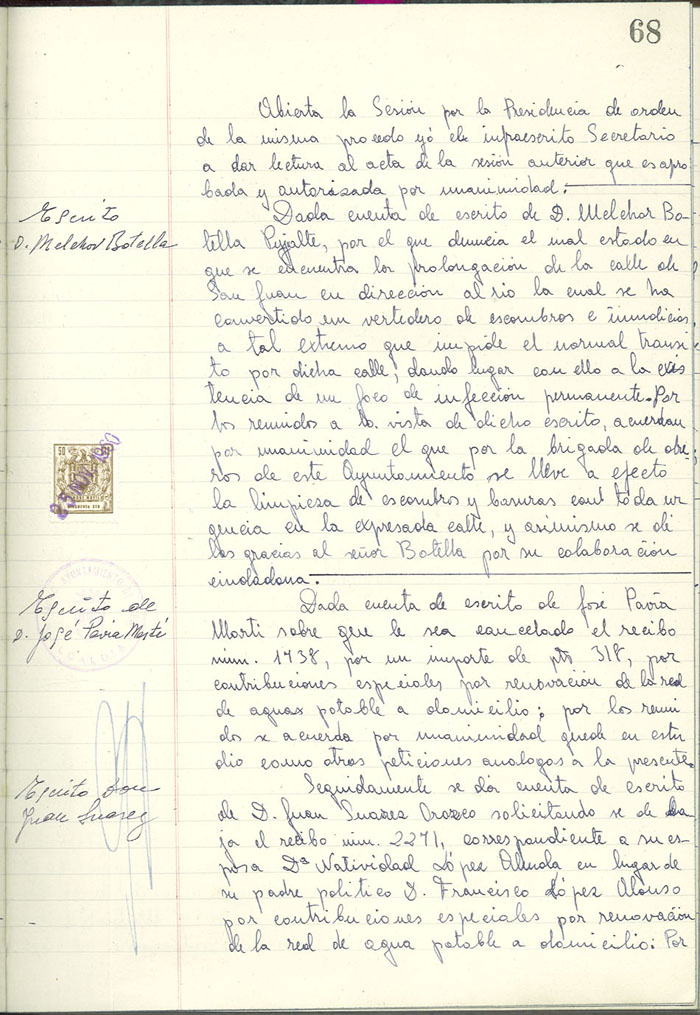 68
Abierta la Sesión por la Presidencia de orden
de la misma procedo yó el infraescrito Secretario
a dar lectura al acta de la sesión anterior que es apro
bada y autorizada por unanimidad.
Escrito
D. Melchor Botella
Dada cuenta de escrito de D. Melchor Bo
tella Pujalte, por el que denuncia el mal estado en
que se encuentra la prolongación de la calle de
San Juan en dirección al rio la cual se ha
convertido en vertedero de escombros e inmundicias,
a tal extremo que impide el normal transi
to por dicha calle, dando lugar con ello a la exis
tencia de un foco de infección permanente. Por
los reunidos a la vista de dicho escrito, acuerdan
por unanimidad el que por la brigada de obre
ros de este Ayuntamiento se lleve a efecto
la limpieza de escombros y basuras con toda ur
gencia en la expresada calle, y asimismo se dé
las gracias al señor Botella por su colaboración
ciudadana.
50
25 NOV 1960
AYUNTAMIENTO DE
ALCALDIA
Escrito de
D. José Pavia Martí
Dada cuenta de escrito de José Pavía
Marti sobre que le sea cancelado el recibo
núm. 1438, por un importe de pts 318, por
contribuciones especiales por renovación de la red
de aguas potable a domicilio; por los reuni
dos se acuerda por unanimidad quede en estu
dio como otras peticiones analogas a la presente.
Escrito Don
Juan Suarez
Seguidamente se dá cuenta de escrito
de D. Juan Suarez Orozco solicitando se de ba
ja el recibo núm. 2271, correspondiente a su es
posa Dª Natividad López en lugar de
su padre politico D. Francisco López Alonso
por contribuciones especiales por renovación
de la red de agua potable a domicilio: Por